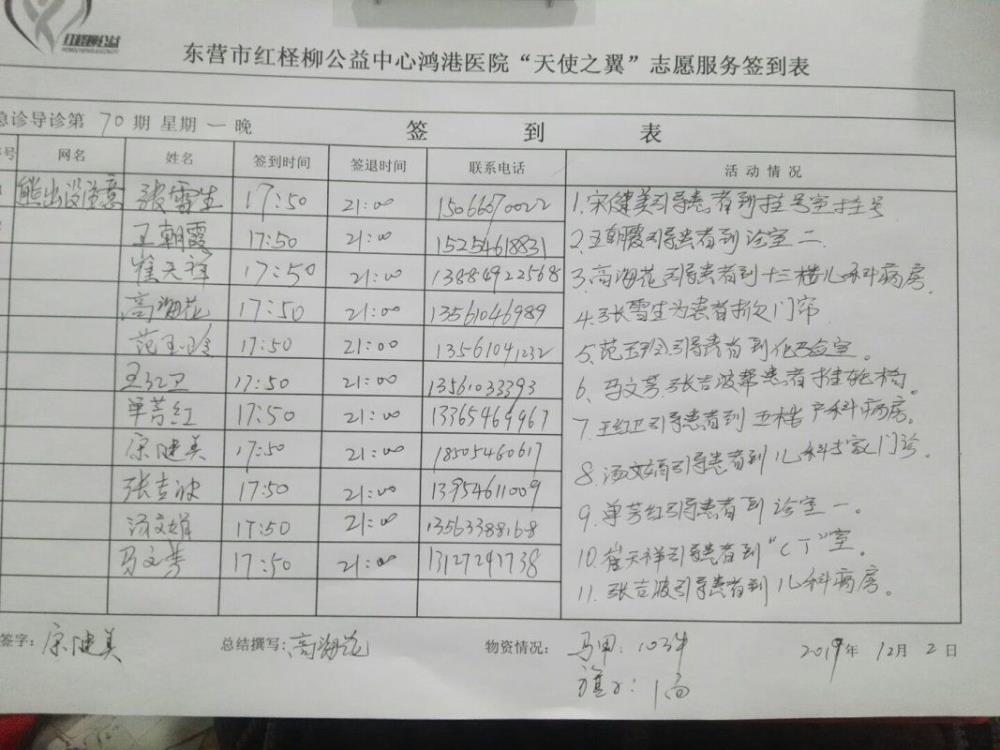 红柽柳公益
东营市红柽柳公益中心鸿港医院“天使之翼”志愿服务签到表
急诊导诊第 70 期 星期 一 晚 签 到 表
号 网名 姓名 签到时间 签退时间 联系电话 活动情况
熊出没注意 张雪生 17:50 21:00 15066070022 1.宋健美引导患者到挂号室挂号
王朝霞 17:50 21:00 15254618831 2.王朝霞引导患者到诊室二
崔天祥 17:50 21:00 13884922568 3.高海花引导患者到十三楼儿科病房.
高海花 17:50 21:00 13561046989 4.张雪生为患者掀门帘
范玉玲 17:50 21:00 13561041232 5.范玉玲引导患者到化验室。
王红卫 17:50 21:00 13561033393 6、马文芳.张吉波帮患者推轮椅。
单芳红 17:50 21:00 13365469967 7.王红卫引导患者到五楼产科病房。
宋健美 17:50 21:00 18505460617 8.汤文娟引导患者到儿科专家门诊.
张吉波 17:50 21:00 13954611009 9.单芳红引导患者到诊室一.
汤文娟 17:50 21:00 13563388168 10.崔天祥引导患者到“CT”室。
马文芳 17:50 21:00 13127241738 11.张吉波引导患者到儿科病房。
签字: 宋健美 总结撰写: 高海花 物资情况: 马甲: 103件 2019年 12月 2日
旗子: 1面